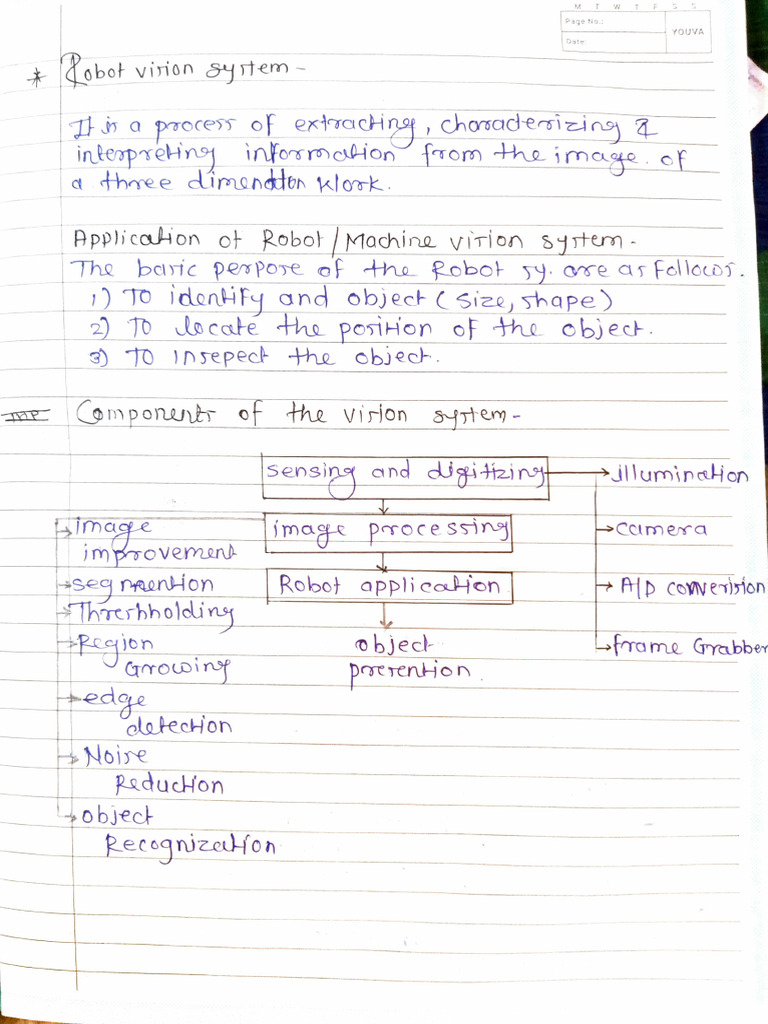 M T W T F S S
Page No.:
YOUVA
Date:
* Robot vision system -
It is a process of extracting, characterizing &
interpreting information from the image. of
a three dimention Work.
Application of Robot / Machine vision system -
The basic perpose of the Robot sy. are as follows.
1) To identify and object (size, shape)
2) To locate the position of the object.
3) To insepect the object.
Imp Components of the vision system -
sensing and digitizing → illumination
image image processing → camera
improvement
segmention Robot application → A/D converision
Threshholding
Region object → frame Grabber
Growing presention.
edge
detection
Noise
Reduction
object
Recognization